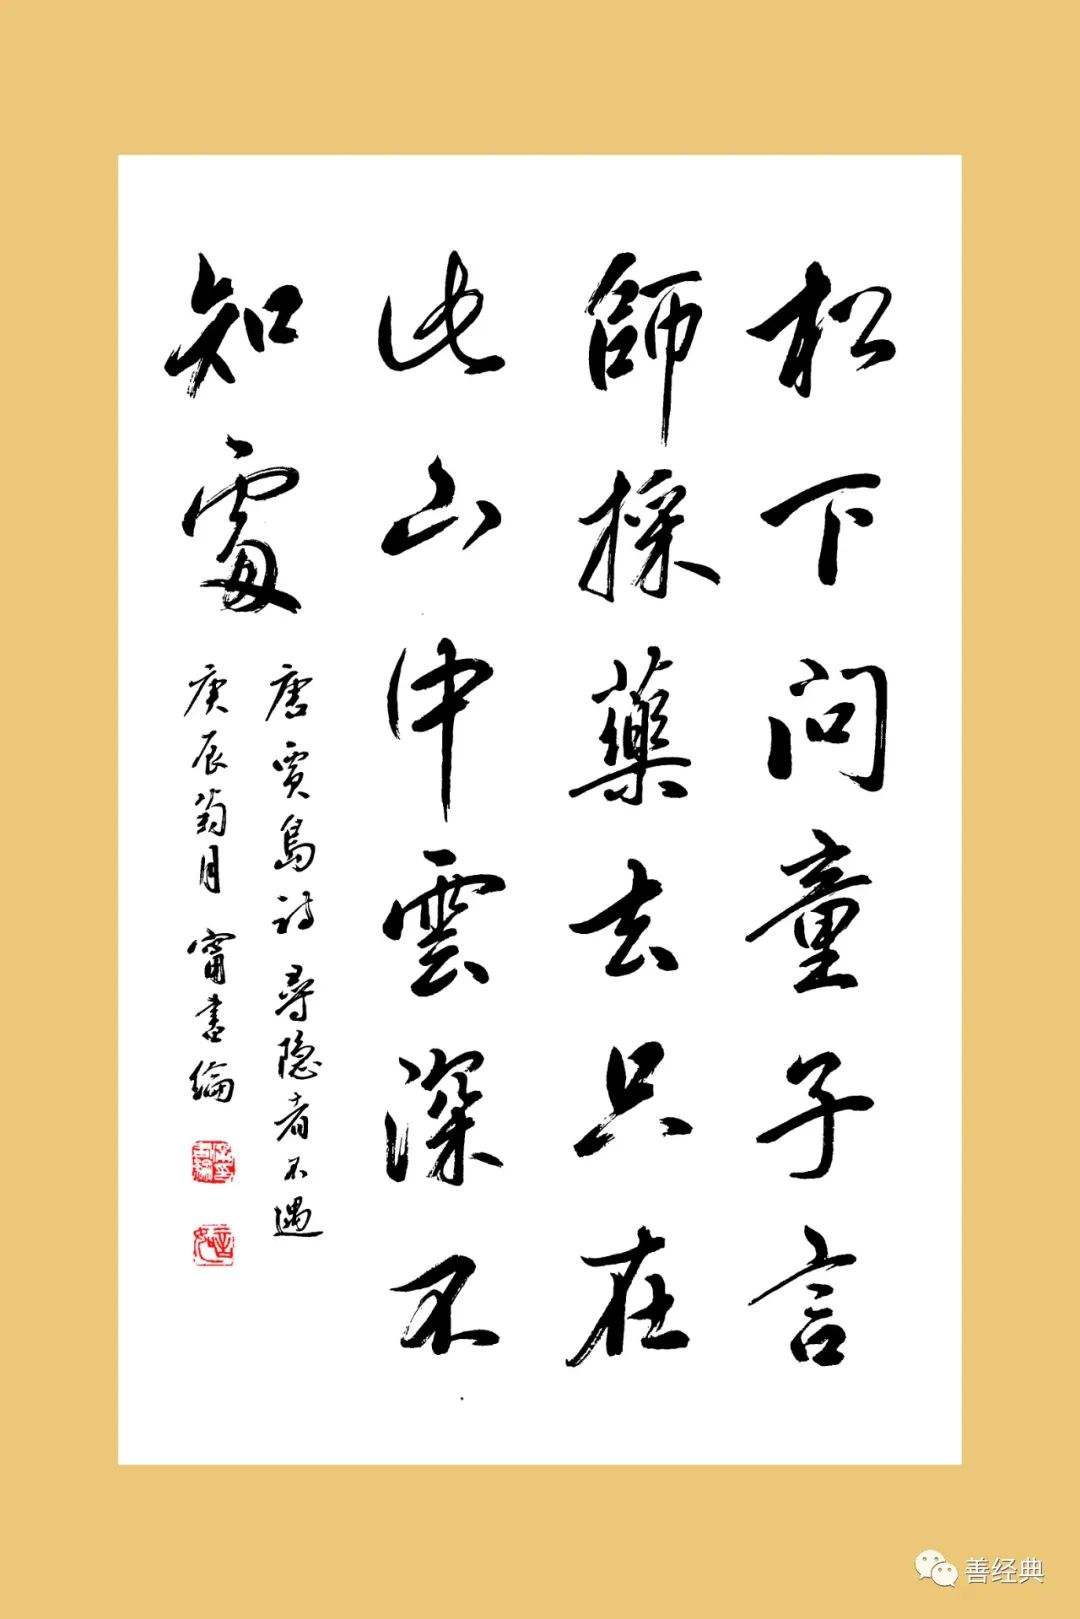 松下问童子言
師採藥去只在
此山中雲深不
知處
唐贾島诗 尋隐者不遇
庚辰菊月 甯書綸
善经典